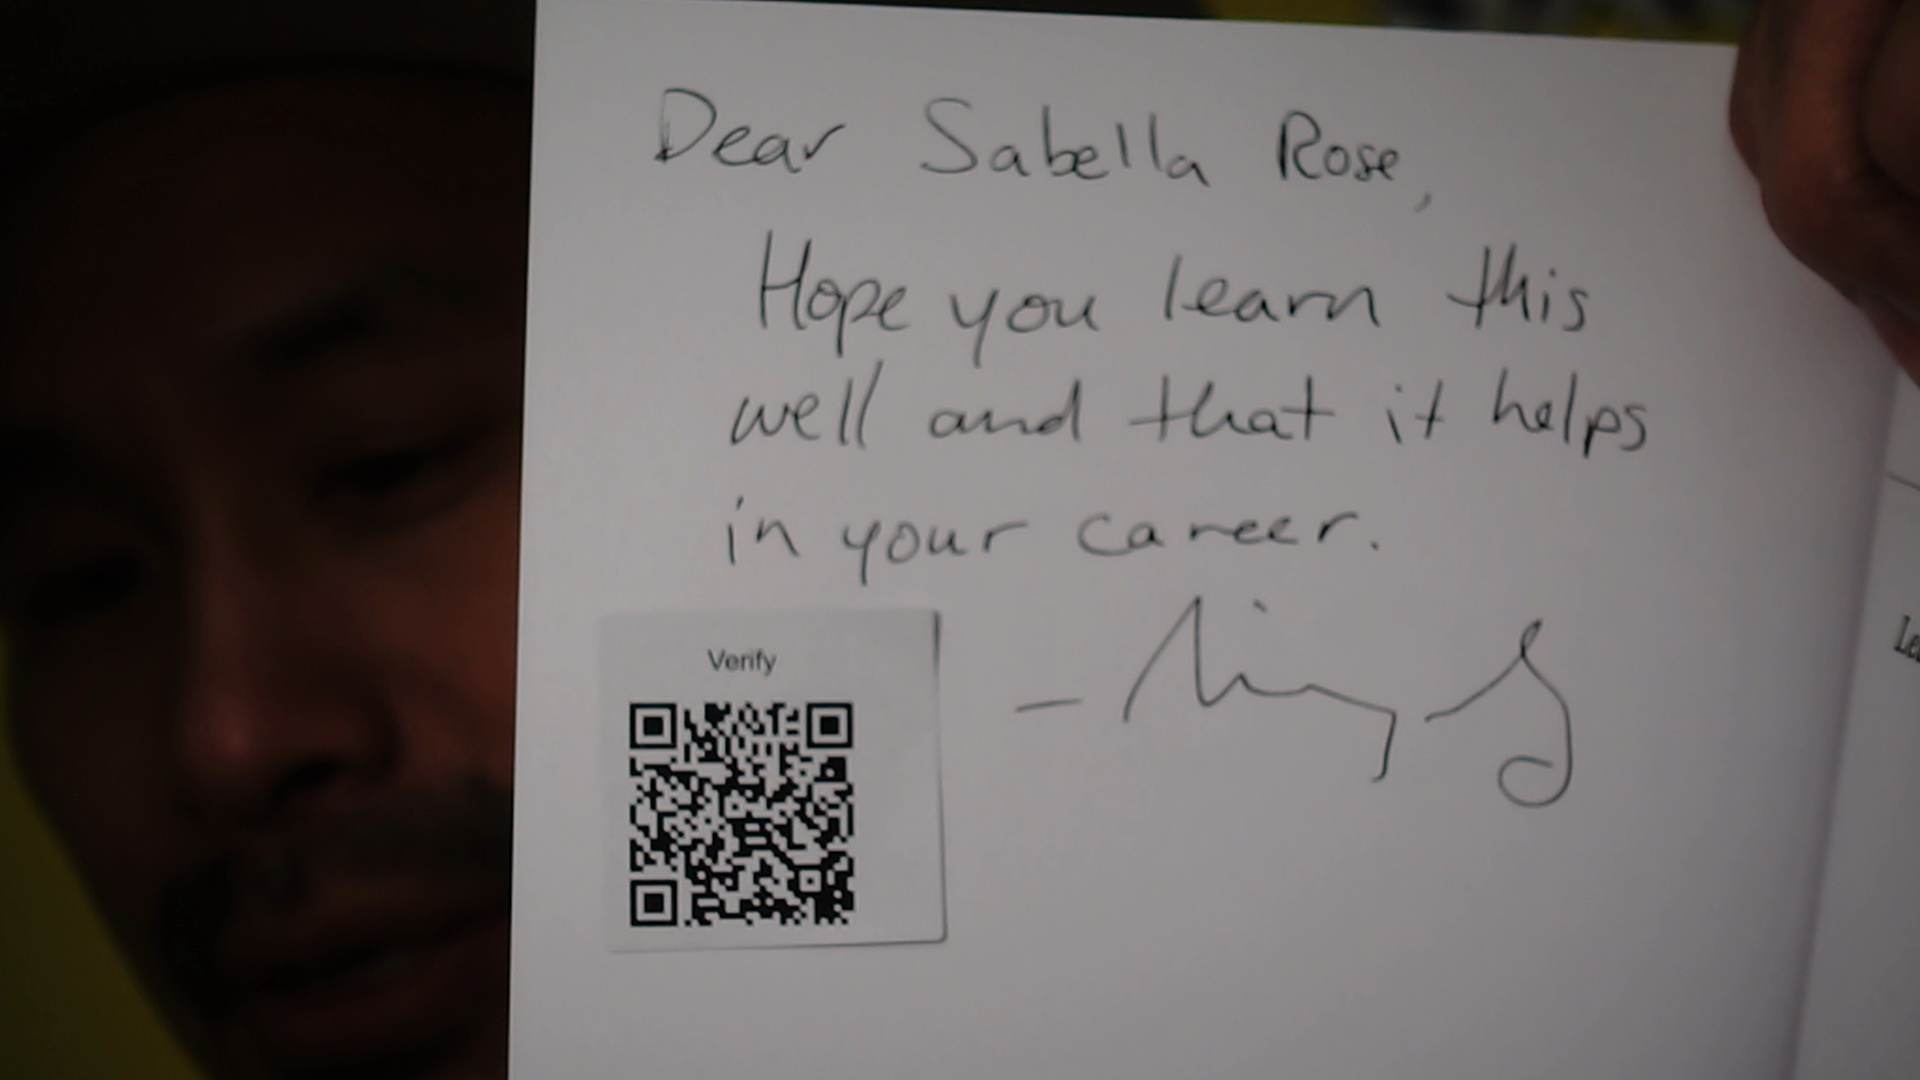 Dear Sabella Rose,
Hope you learn this
well and that it helps
in your career.
Verify